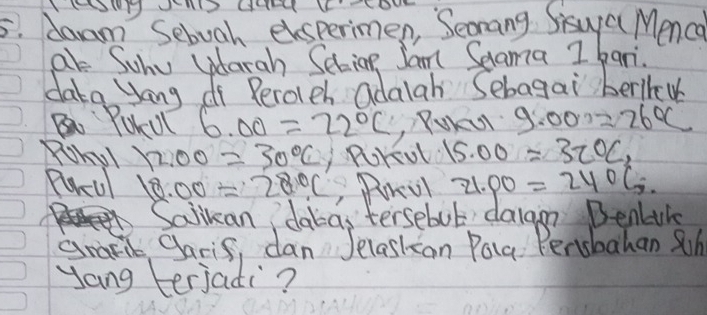 5. dalam Sebuah eksperimen, Seorang Siswa Menca
at Suhu Udarah Setiap Jam Selama 1 hari.
data Yang di Peroleh adalah Sebagai berikut
Pukul 6.00 = 22°C, Pukul 9.00 = 26°C
Pukul 12.00 = 30°C, Pukul 15.00 = 32°C,
Pukul 18.00 = 28°C, Pukul 21.00 = 24°C.
Sajikan data tersebut dalam Bentuk
grafik garis, dan Jelaskan Pola Perubahan Suh
Yang terjadi?